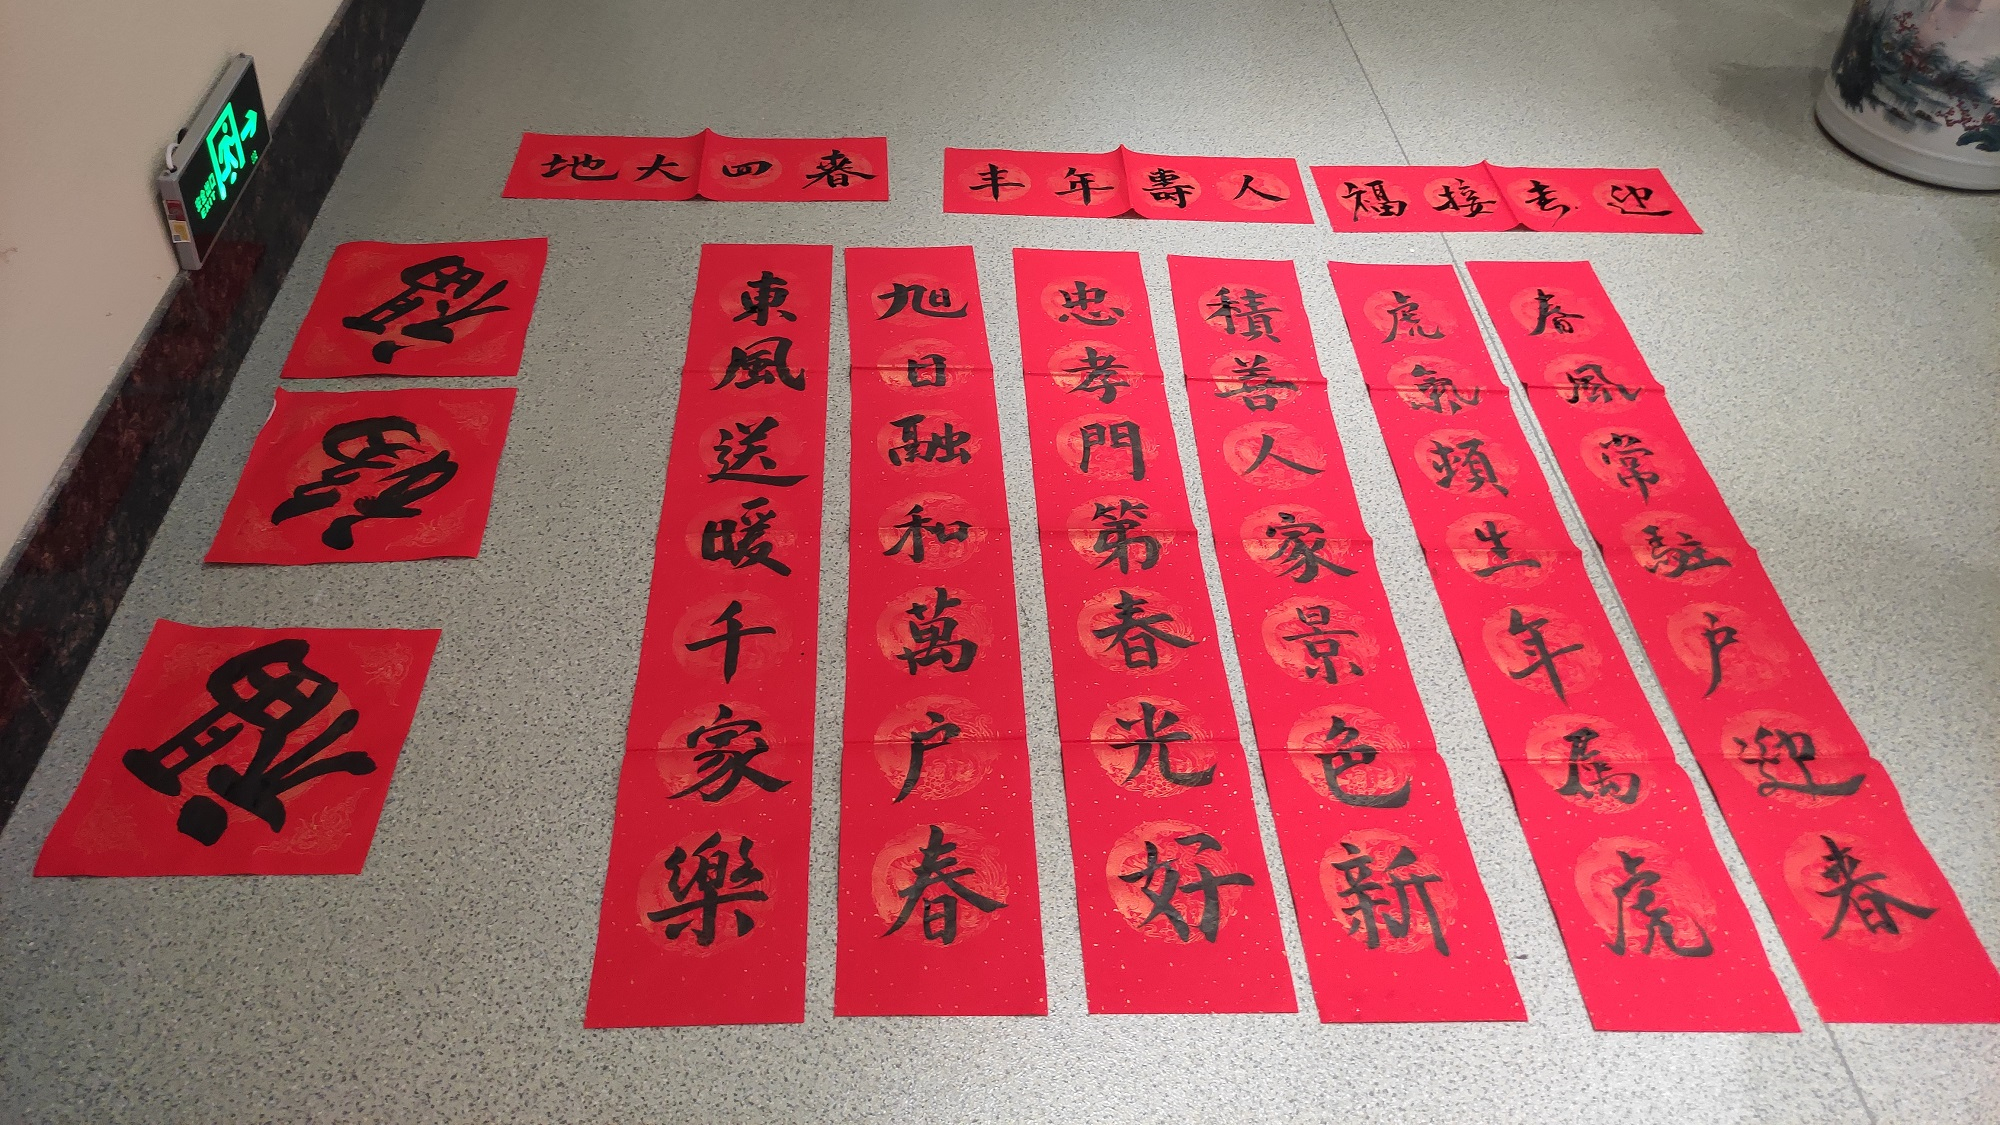 迎春接福
人壽年丰
春回大地
春風常駐户迎春
虎氣頻生年属虎
積善人家景色新
忠孝門第春光好
旭日融和萬户春
東風送暖千家樂
福
福
福
安全出口